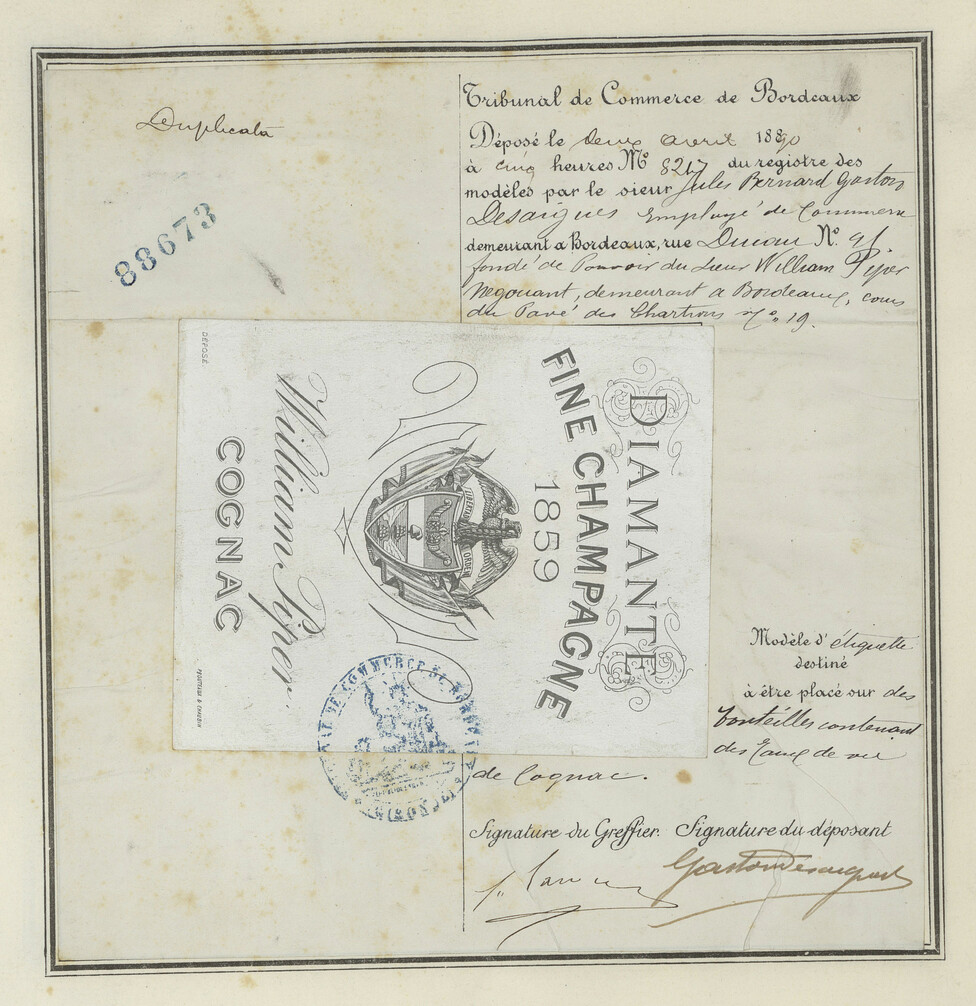 Duplicata
88673
Tribunal de Commerce de Bordeaux
Déposé le deux avril 1890
à cinq heures No 8217 du registre des
modèles par le sieur Jules Bernard Gaston
Desaigues Employé de Commerce
demeurant a Bordeaux, rue No. 91.
fondé de Pouvoir du Sieur William Piper
Négociant, demeurant a Bordeaux, cours
du Pavé des Chartrons No. 19.
DIAMANTE
FINE CHAMPAGNE
1859
LIBERTAD
ORDEN
William Piper.
COGNAC
DÉPOSÉ
Modèle d'étiquette
destiné
à être placé sur des
bouteilles contenant
des Eaux de vie
de Cognac.
TRIBUNAL DE COMMERCE DE BORDEAUX
(GIRONDE)
Signature du Greffier. Signature du déposant
Gaston Desaigues